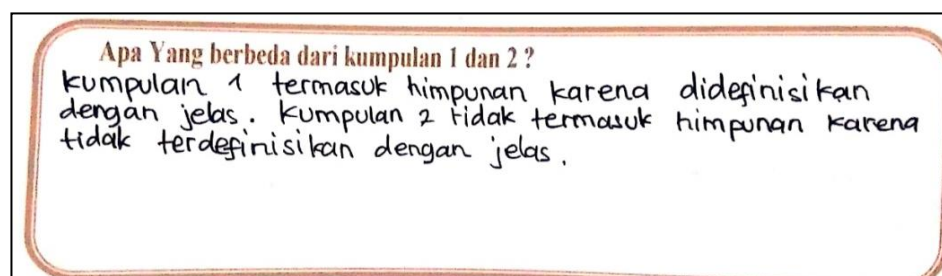 Apa Yang berbeda dari kumpulan 1 dan 2 ?
kumpulan 1 termasuk himpunan karena didefinisikan
dengan jelas. kumpulan 2 tidak termasuk himpunan karena
tidak terdefinisikan dengan jelas.